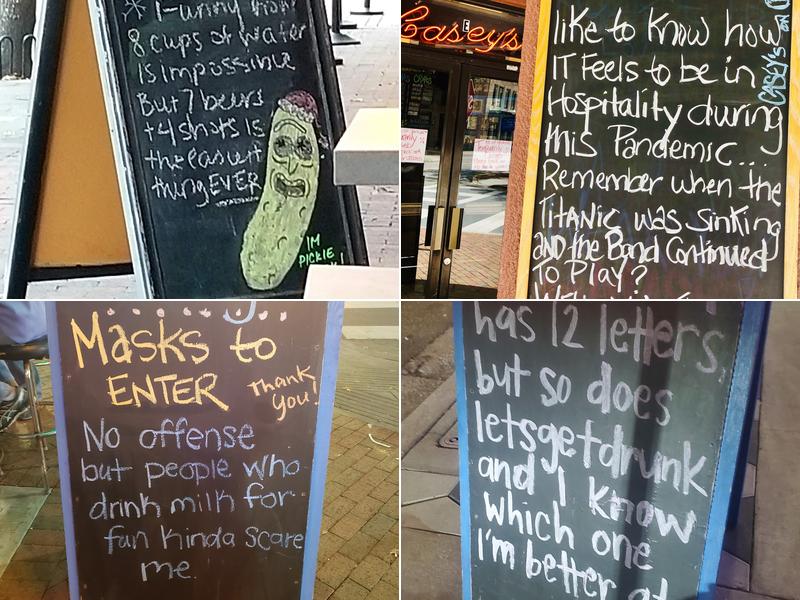 * Funny how
8 cups of water
is impossible
But 7 beers
+4 shots is
the easiest
thing EVER
I'M
PICKLE
Casey's
like to know how
IT Feels to be in
Hospitality during
this Pandemic...
Remember when the
TITANIC was sinking
AND the Band Continued
To Play?
CASEY'S
Masks to
ENTER
Thank
you!
No offense
but people who
drink milk for
fun kinda scare
me.
has 12 letters
but so does
letsgetdrunk
and I know
which one
i'm better at